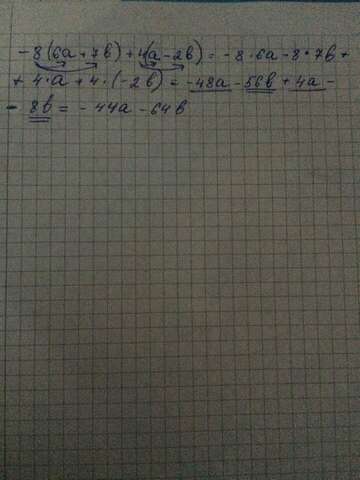 -8(6a+7b)+4(a-2b)=-8·6a-8·7b+
+4·a+4·(-2b)=-48a-56b+4a-
-8b=-44a-64b